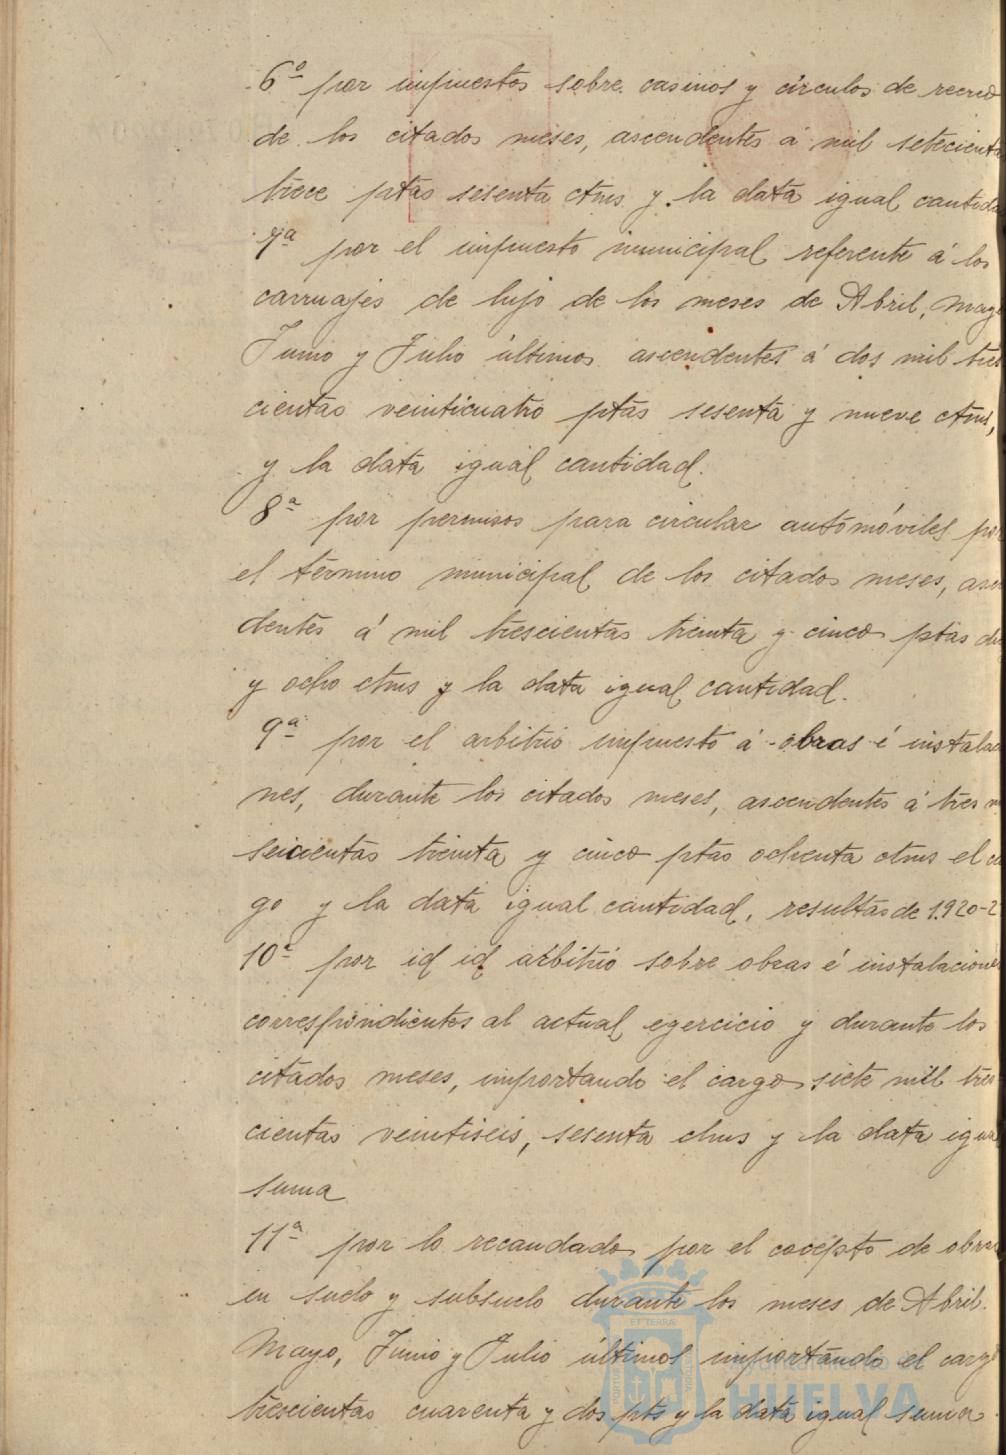 6º por impuestos sobre casinos y círculos de recreo
de los citados meses, ascendentes á mil setecient
trece ptas sesenta ctms y la data igual cantida
7ª por el impuesto municipal referente á los
carruajes de lujo de los meses de Abril, May
Junio y Julio últimos ascendentes á dos mil tres
cientas veinticuatro ptas sesenta y nueve ctms,
y la data igual cantidad.
8ª por permisos para circular automóviles por
el término municipal de los citados meses, asc
dentes á mil trescientas treinta y cinco ptas di
y ocho ctms y la data igual cantidad.
9ª por el arbitrio impuesto á obras é instalac
nes, durante los citados meses, ascendentes á tres m
seicientas treinta y cinco ptas ochenta ctms el ca
go y la data igual cantidad, resultas de 1.920-2
10ª por id id arbitrio sobre obras é instalacione
correspondientes al actual egercicio y durante los
citados meses, importando el cargo siete mil tres
cientas veintiseis, sesenta ctms y la data igua
suma
11ª por lo recaudado por el cocepto de obras
en suelo y subsuelo durante los meses de Abril.
Mayo, Junio y Julio últimos importando el carg
trescientas cuarenta y dos pts y la data igual suma.
ET TERRÆ
Ayuntamiento de
HUELVA